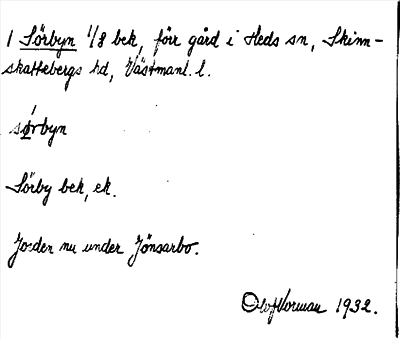 1 Sörbyn 1/8 bek, förr gård i Heds sn, Skinn-
skattebergs hd, Västmanl. l.
sørbyn
Sörby bek, ek.
Jorden nu under Jönsarbo.
Olof Norman 1932.